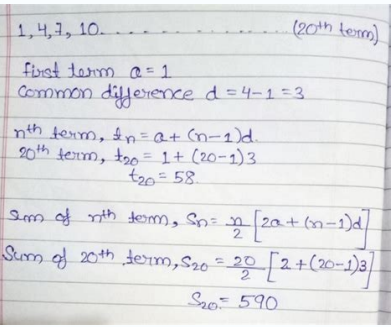 1, 4, 7, 10. . . . . . . . . . . . . . . . (20th term)
first term a = 1
Common difference d = 4-1 = 3
nth term, tn = a + (n-1)d.
20th term, t20 = 1 + (20-1)3
t20 = 58.
Sum of nth term, Sn = n/2 [2a + (n-1)d]
Sum of 20th term, S20 = 20/2 [2 + (20-1)3]
S20 = 590